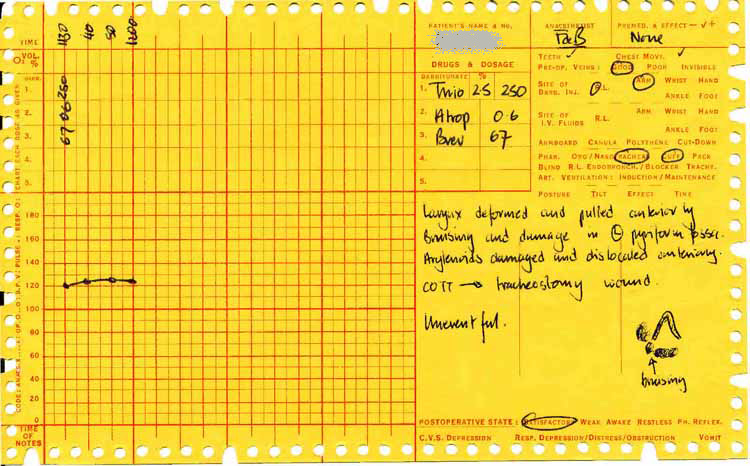 TIME
1130
40
50
1200
VOL.
O₂ %
CHART EACH DOSE AS GIVEN
1.
2.
3.
4.
5.
67 0.6 250
180
160
140
120
100
80
60
40
20
0
TIME OF NOTES
PATIENT'S NAME & No.
DRUGS & DOSAGE
BARBITURATE %
1. Thio 2.5 250
2. Atrop 0.6
3. Brev 67
4.
5.
ANAESTHETIST
PREMED. & EFFECT — ✓ +
None
TEETH ✓ CHEST MOVT. ✓
PRE-OP. VEINS: GOOD POOR INVISIBLE
SITE OF DRUG. INJ. R.L. ARM WRIST HAND
ANKLE FOOT
SITE OF I.V. FLUIDS R.L. ARM WRIST HAND
ANKLE FOOT
ARMBOARD CANULA POLYTHENE CUT-DOWN
PHAR. ORO/NASO TRACHEAL CUFF PACK
BLIND R.L. ENDOBRONCH./BLOCKER TRACHY.
ART. VENTILATION: INDUCTION/MAINTENANCE
POSTURE TILT EFFECT TIME
Larynx deformed and pulled anteriorly
Bruising and damage in Ⓛ pyriform fossa.
Arytenoids damaged and dislocated anteriorly.
COTT → tracheostomy wound.
Uneventful.
bruising
POSTOPERATIVE STATE: SATISFACTORY WEAK AWAKE RESTLESS PH. REFLEX.
C.V.S. DEPRESSION RESP. DEPRESSION/DISTRESS/OBSTRUCTION VOMIT